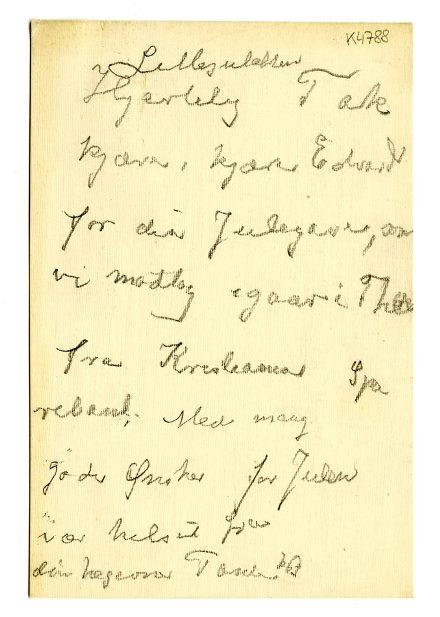 K4788
Lillejulaften
Hjertelig Tak
kjære, kjære Edvard
for din Julegave, som
vi modtog igaar i
fra Kristiania Spa
rebank. Med mang
gode Ønsker for Julen
vær hilset fra
din Tante